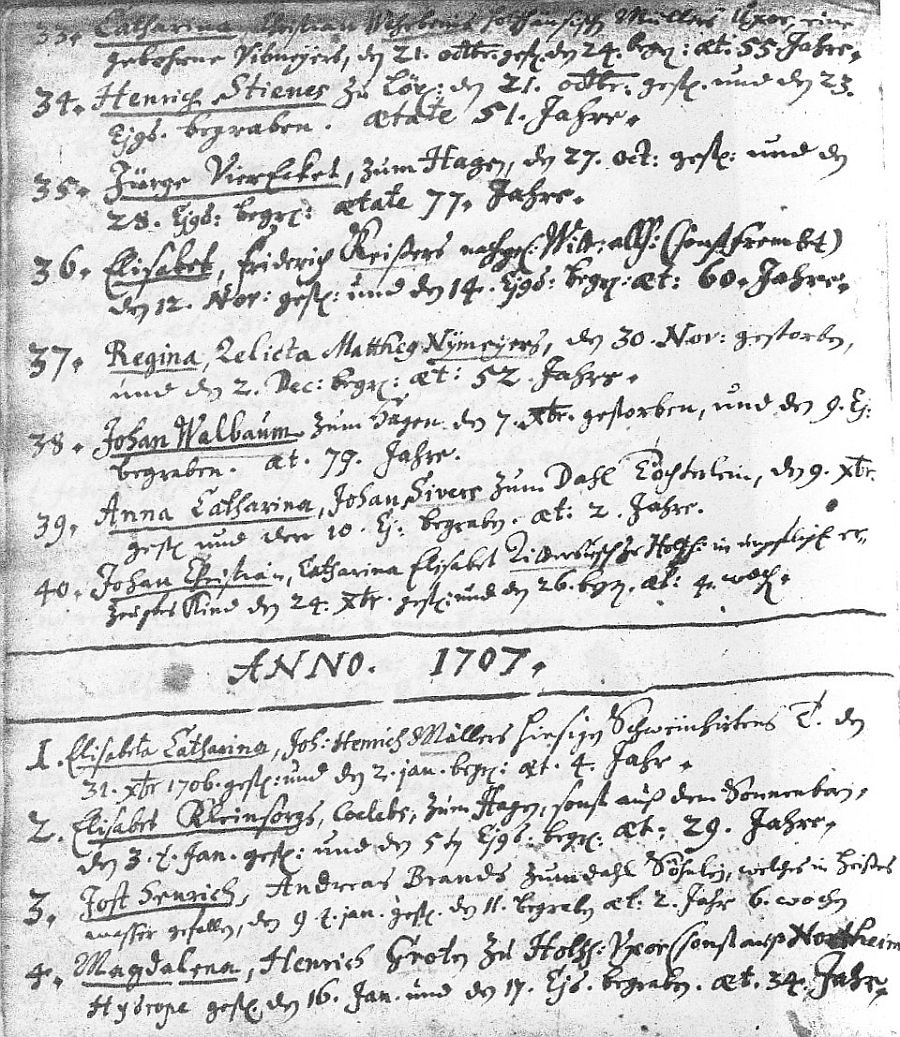 33. Catharina, Christian Wilhelms Holthausisch Müllers Uxor, eine
gebohrne Vitmeyers, den 21. octbr. gest. den 24. begr: aet: 55 Jahre.
34. Henrich Stienes zu Lör: den 21. octbr. gest. und den 23.
Ejus. begraben. aetate 51. Jahre.
35. Jürge VierEckel, zum Hagen, den 27. oct: gest: und den
28. Ejus: begr: aetate 77. Jahre.
36. Elisabet, Friderich Reisers nachgel: Witt: allh: (sonst frembt)
den 12. Nov: gest: und den 14. Ejus: begr: aet: 60. Jahre.
37. Regina, Relicta Matthei Nymeyers, den 30. Nov: gestorben,
und den 2. Dec: begr: aet: 52. Jahre.
38. Johan Walbaum zum Hagen den 7. Xbr. gestorben, und den 9. Ej:
begraben. aet. 79. Jahre.
39. Anna Catharina, Johan Sivers zum Dahl Töchterlein, den 9. xbr.
gest und den 10. Ej: begraben. aet: 2. Jahre.
40. Johan Christian, Catharina Elisabet zu Holth: in er-
zeugtes Kind den 24. Xbr. gest: und den 26. begr. aet: 4. woch.
ANNO. 1707.
1. Elisabeta Catharina, Joh: Henrich Müllers hiesigen Schweinhirtens T. den
31. xbr 1706. gest: und den 2. jan. begr: aet. 4. Jahr.
2. Elisabet Kleinsorgs, Coelebs, zum Hagen, sonst auß dem Sonnenborn,
den 3. t. Jan. gest: und den 5t Ejus: begr: aet: 29. Jahre.
3. Jost Henrich, Andreas Brands zum dahl Söhnlein, welches in heißes
wasser gefallen, den 9 t. jan. gest. den 11. begraben aet: 2. Jahr 6. wochen
4. Magdalena, Henrich Groten zu Holth: Uxor (sonst auß Northeim
Hydrope gest. den 16. Jan. und den 17. Ejs. begraben. aet. 34. Jahr.